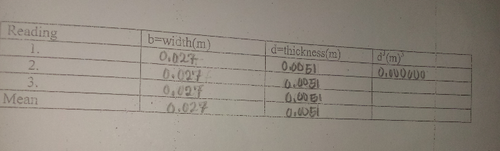 Reading b=width(m) d=thickness(m) d³(m)³
1. 0.027 0.0051 0.000000
2. 0.027 0.0051
3. 0.027 0.0051
Mean 0.027 0.0051